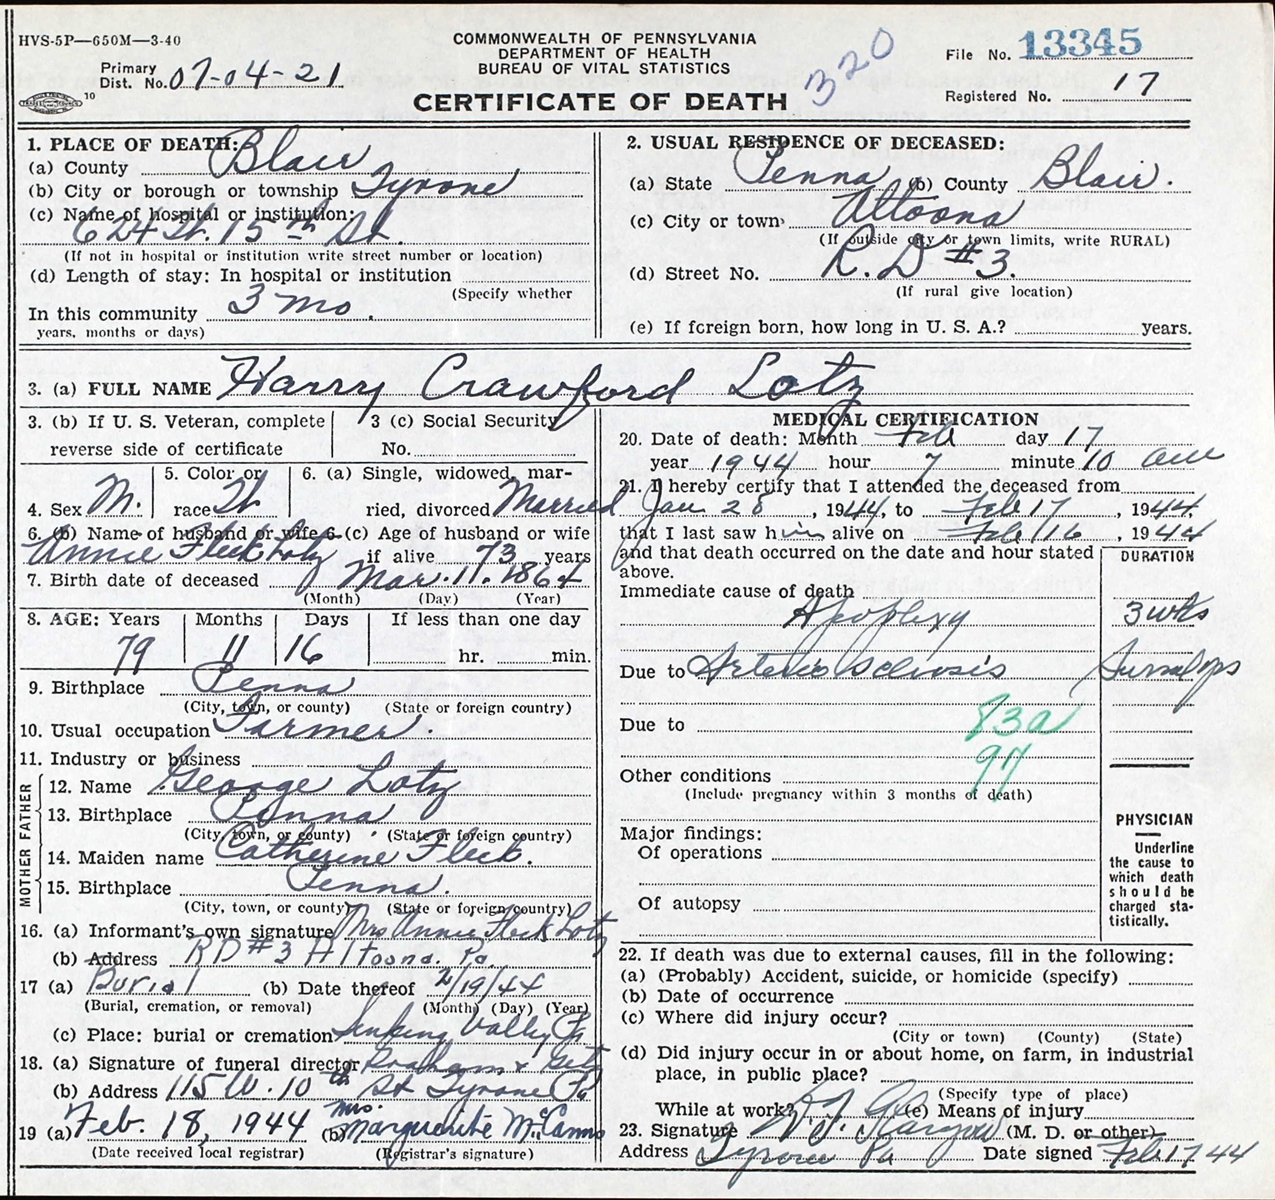 HVS-5P—650M—3-40
COMMONWEALTH OF PENNSYLVANIA
DEPARTMENT OF HEALTH
BUREAU OF VITAL STATISTICS
CERTIFICATE OF DEATH
320
Primary Dist. No. 07-04-21
10
File No. 13345
Registered No. 17
1. PLACE OF DEATH:
(a) County Blair
(b) City or borough or township Tyrone
(c) Name of hospital or institution:
624 W. 15th St.
(If not in hospital or institution write street number or location)
(d) Length of stay: In hospital or institution
(Specify whether
In this community 3 mo.
years, months or days)
2. USUAL RESIDENCE OF DECEASED:
(a) State Penna (b) County Blair.
(c) City or town Altoona
(If outside city or town limits, write RURAL)
(d) Street No. R. D #3.
(If rural give location)
(e) If foreign born, how long in U. S. A.? years.
3. (a) FULL NAME Harry Crawford Lotz
3. (b) If U. S. Veteran, complete reverse side of certificate
3 (c) Social Security No.
4. Sex M.
5. Color or race W
6. (a) Single, widowed, married, divorced Married
6. (b) Name of husband or wife Annie Fleck Lotz
6 (c) Age of husband or wife if alive 73 years
7. Birth date of deceased Mar. 1. 1864
(Month) (Day) (Year)
8. AGE: Years Months Days If less than one day
79 11 16 hr. min.
9. Birthplace Penna
(City, town, or county) (State or foreign country)
10. Usual occupation Farmer.
11. Industry or business
FATHER
12. Name George Lotz
13. Birthplace Penna
(City, town, or county) (State or foreign country)
MOTHER
14. Maiden name Catherine Fleck.
15. Birthplace Penna.
(City, town, or county) (State or foreign country)
16. (a) Informant's own signature Mrs Annie Fleck Lotz
(b) Address RD #3 Altoona. Pa
17 (a) Burial (b) Date thereof 2/19/44
(Burial, cremation, or removal) (Month) (Day) (Year)
(c) Place: burial or cremation Sinking Valley Pa
18. (a) Signature of funeral director
(b) Address 115 W. 10th St Tyrone Pa
19 (a) Feb. 18, 1944 (b) Mrs. Marguerite McCanns
(Date received local registrar) (Registrar's signature)
MEDICAL CERTIFICATION
20. Date of death: Month Feb day 17
year 1944 hour 7 minute 10 am
21. I hereby certify that I attended the deceased from
Jan 28, 1944, to Feb 17, 1944.
that I last saw him alive on Feb 16, 1944
and that death occurred on the date and hour stated above.
DURATION
Immediate cause of death
Apoplexy 3 wks
Due to Arterio sclerosis Several yrs
Due to
83a
97
Other conditions
(Include pregnancy within 3 months of death)
Major findings:
Of operations
Of autopsy
PHYSICIAN
Underline the cause to which death should be charged statistically.
22. If death was due to external causes, fill in the following:
(a) (Probably) Accident, suicide, or homicide (specify)
(b) Date of occurrence
(c) Where did injury occur?
(City or town) (County) (State)
(d) Did injury occur in or about home, on farm, in industrial place, in public place?
(Specify type of place)
While at work? (e) Means of injury
23. Signature (M. D. or other)
Address Tyrone Pa Date signed Feb 17 44